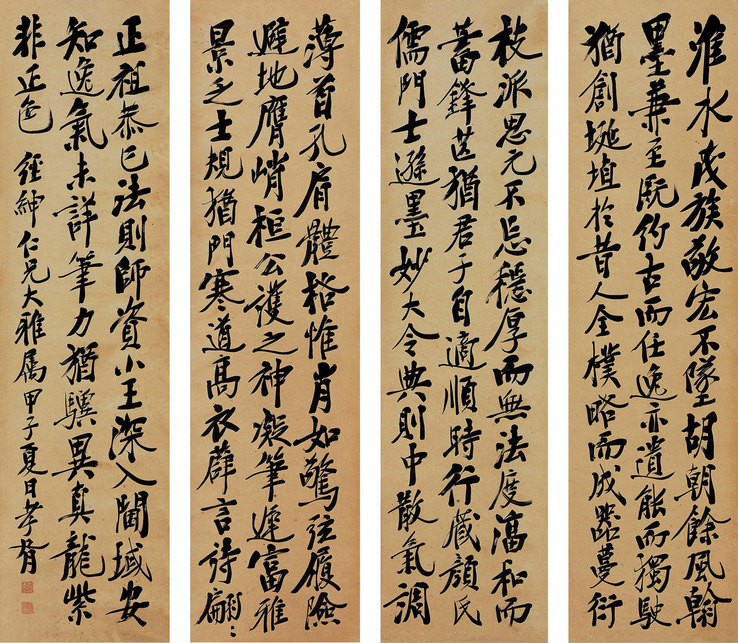 淮水茂族敬宏不墜胡朝餘風翰
墨兼至既仿古而任逸亦遺能而獨駛
猶創埏埴於昔人全樸略而成器蔓衍
枝派思元不忘穩厚而無法度溫和而
蓄鋒芒猶君子自適順時行藏顏氏
儒門士遜墨妙大令典則中散氣調
薄首孔肩體格惟肖如驚弦履險
避地膺峭桓公護之神凝筆遲富雅
景之士規猶門寒道高衣薜言詩翩〻
正祖恭已法則師資小王深入閫域安
知逸氣未詳筆力猶驥異真龍紫
非正色 經紳仁兄大雅属 甲子夏日孝胥